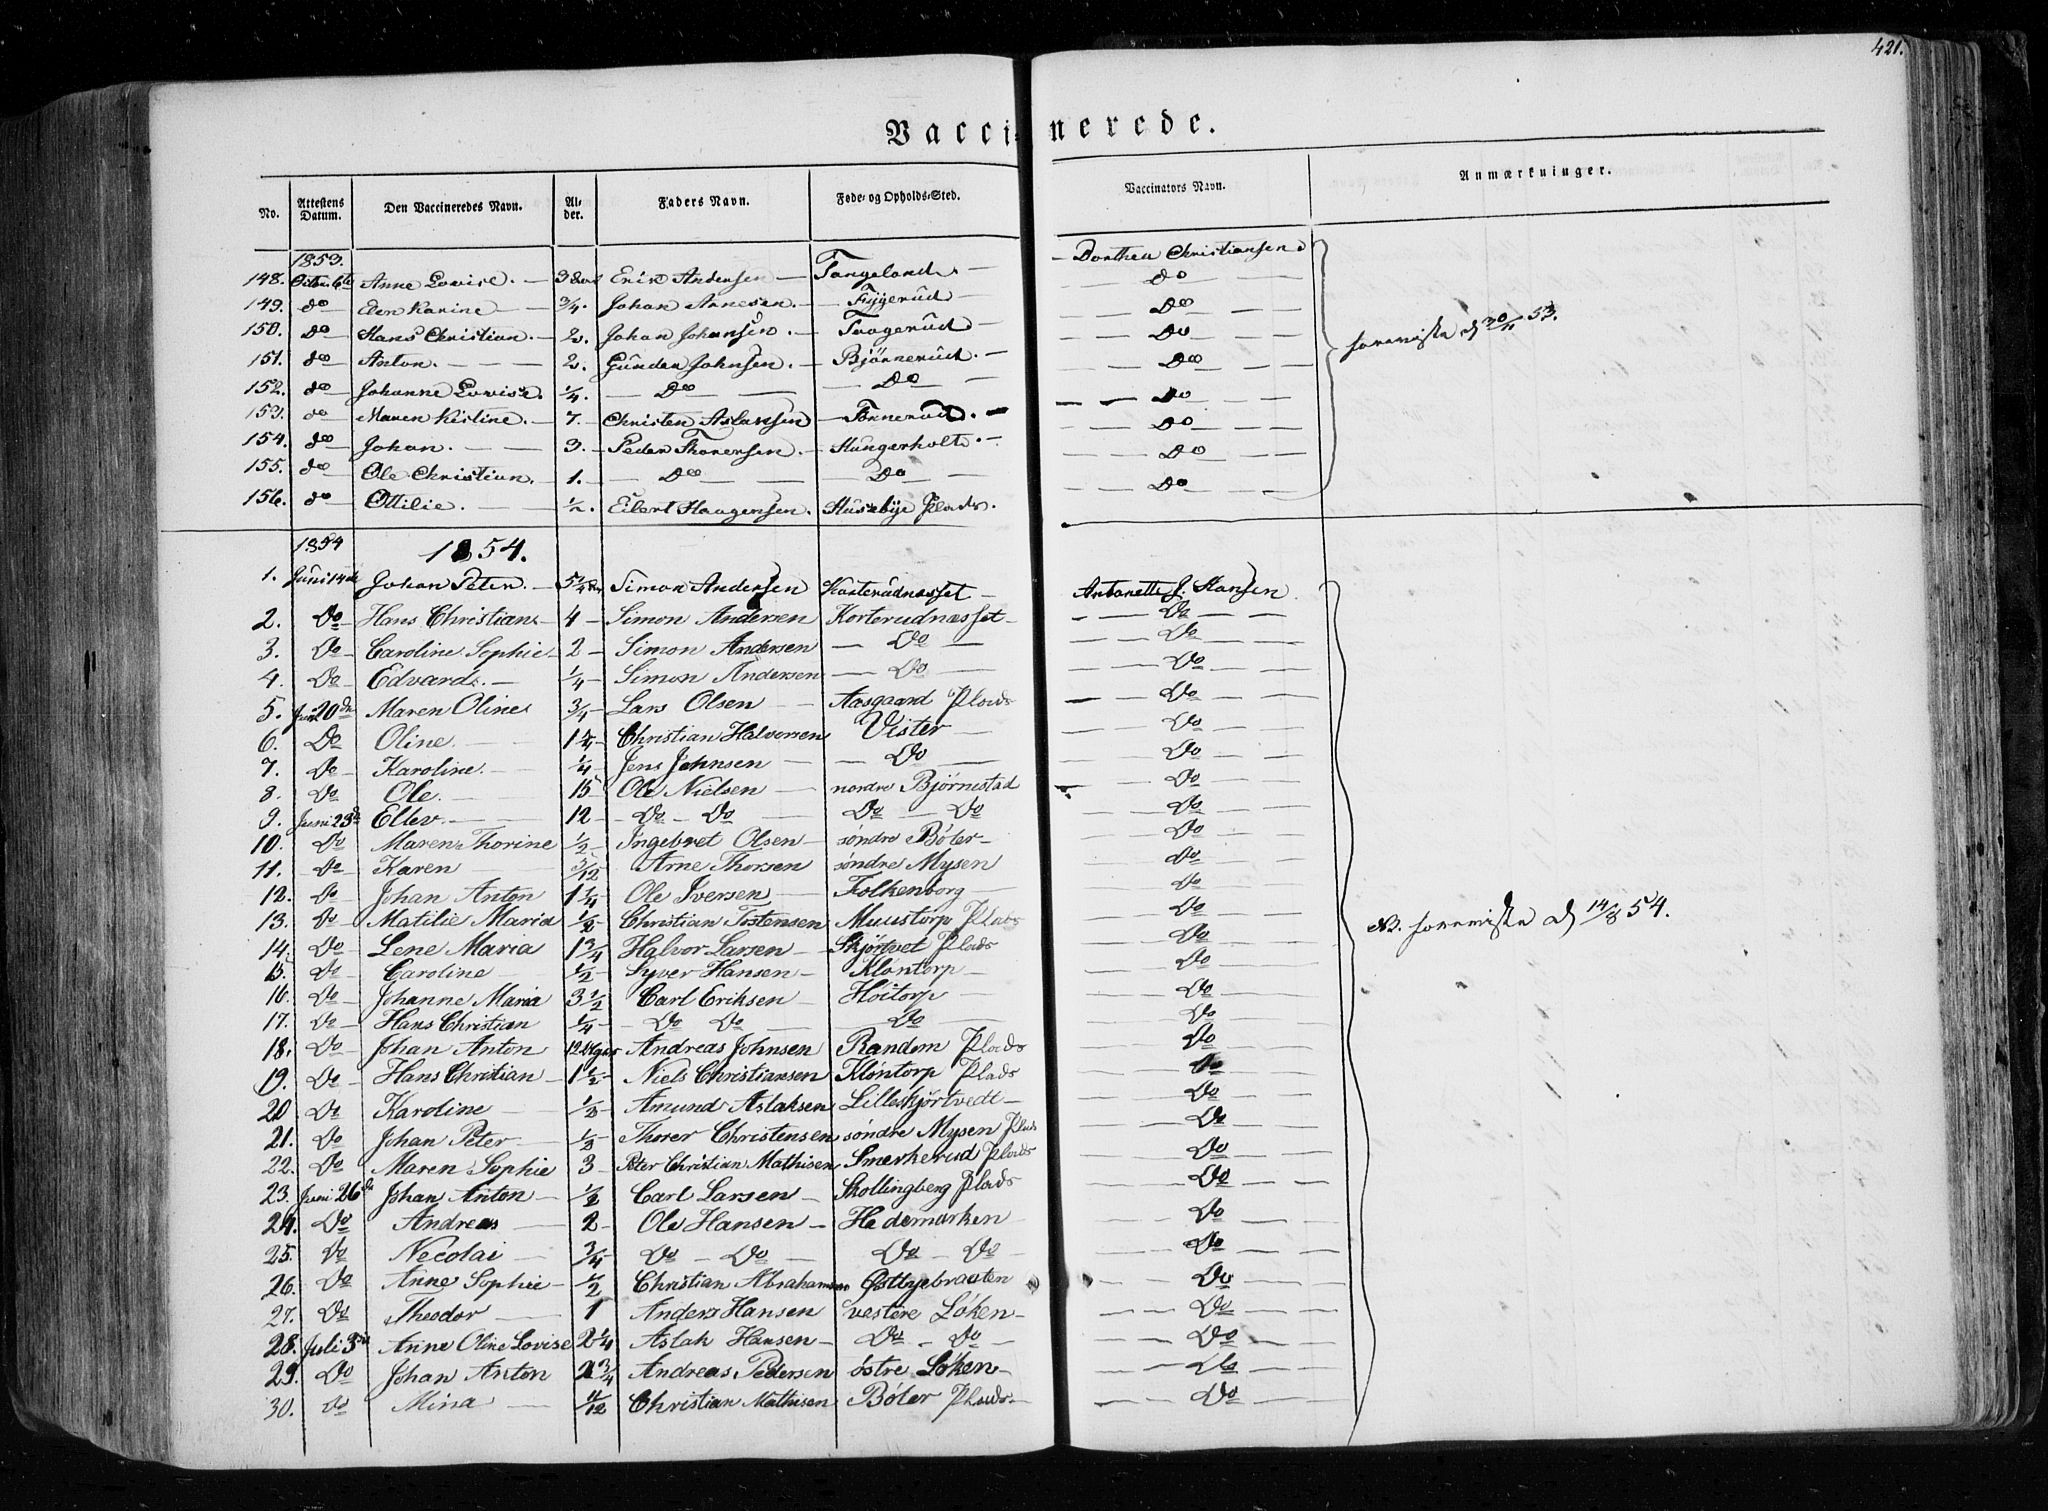 421.
Vaccinerede.
No. Attestens Datum. Den Vaccineredes Navn. Alder. Faders Navn. Føde- og Opholds-Sted. Vaccinators Navn. Anmærkninger.
1853.
148. Anne Lovise. — 3 Erik Andersen — Tangeland — Dorthea Christiansen
149. do Ellen Karine — 3/4. Johan Arnesen. — Fyggerud — Do
150. do Hans Christian. — 2. Johan Johansen. — Taagerud — Do
151. do Anton. — 2. Gunder Johnsen. — Bjørnerud. — Do
152. do Johanne Lovise. 1/4. — Do — Do — Do foreviste d 30/11 53.
153. do Maren Kistine. — 7. Christen Aslaksen — Tønnerud. — Do
154. do Johan. — 3. — Peder Thorersen. — Hungerholt. — Do
155. do Ole Christian. 1. — Do — Do — Do
156. do Ottilie. — 1/2. Eilert Haagensen. Husebye Plads. Do
1854
1854.
1. Juni 14de Johan Peter. — 5 1/4 Simon Andersen Korterudnæsset — Antonette J. Hansen.
2. Do Hans Christian — 4 — Simon Andersen Korterudnæsset — Do
3. Do Caroline Sophie — 2 — Simon Andersen — Do — Do
4. Do Edvard. — 1/4 — Simon Andersen — Do — Do
5. Juni 20de Maren Oline 3/4 — Lars Olsen — Aasgaard Plads Do
6. Do Oline. — 1 1/4 — Christian Halvorsen Vister — Do
7. Do Karoline. — 1/4 — Jens Johnsen — Do — Do
8. Do Ole. — 15 — Ole Nielsen — nordre Bjørnestad Do
9. Juni 23de Ellev. — 12 — Do — Do — Do — Do Do
10. Do Maren Thorine 1/2 — Ingebret Olsen — søndre Bøler — Do
11. Do Karen — 3/12 Arne Thorsen søndre Mysen Do
12. Do Johan Anton 1 1/4 Ole Iversen — Folkenborg — Do
13. Do Matilie Maria 1/2 — Christian Tostensen Muustorp Plads Do NB. foreviste d 14/8 54.
14. Do Lene Maria 1 3/4 Halvor Larsen — Skjørtvet Plads Do
15. Do Caroline — 1/2 — Syver Hansen — Kløntorp — Do
16. Do Johanne Maria 3 1/2 Carl Eriksen — Høitorp — Do
17. Do — Hans Christian 1/4 — Do Do — Do — Do
18. Do Johan Anton 12 Andreas Johnsen Random Plads Do
19. Do Hans Christian — 1 1/2 — Niels Christiansen Kløntorp Plads Do
20 Do Karoline — 1/2 — Amund Aslaksen Lilleskjørtvedt — Do
21. Do Johan Peter — 1/2 — Thorer Christensen søndre Mysen Plads Do
22. Do Maren Sophie 3 — Peter Christian Mathisen Smerkerud Plads Do
23. Juni 26de Johan Anton — 1/2 Carl Larsen — Skollingberg Plads Do
24. Do Andreas — 2 — Ole Hansen — Hedemarken Do
25. Do Necolai — 3/4 Do — Do — Do — Do Do
26. Do Anne Sophie — 1/2 Christian Abrahamsen Østbyebraaten Do
27. Do Theodor — 1 Anders Hansen vestere Løken — Do
28. Juli 3die Anne Oline Lovise 2 1/4 Aslak Hansen — Do — Do — Do
29. Do Johan Anton 3/4 Andreas Pedersen østre Løken — Do
30. Do Mina — Christian Mathisen Bøler Plads — Do